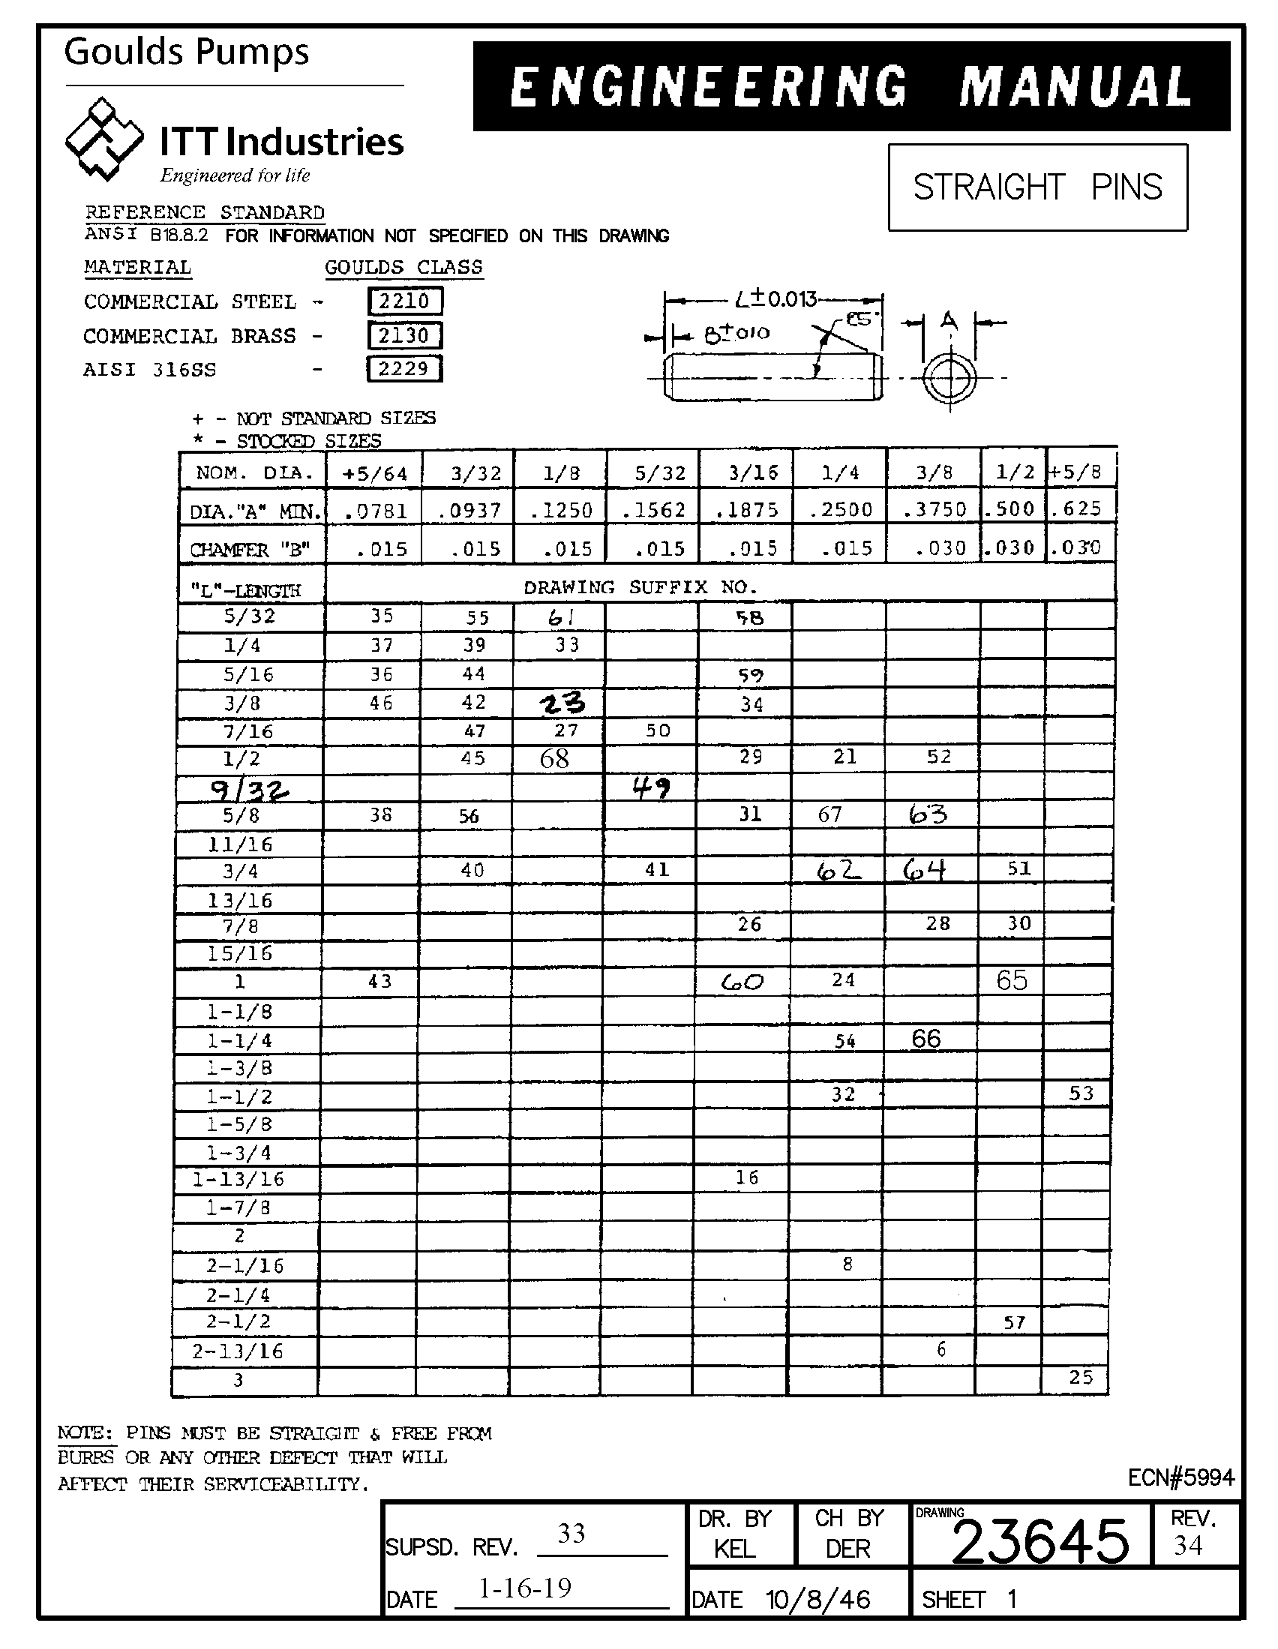 Goulds Pumps
ENGINEERING MANUAL
ITT Industries
Engineered for life
STRAIGHT PINS
REFERENCE STANDARD
ANSI B18.8.2 FOR INFORMATION NOT SPECIFIED ON THIS DRAWING
MATERIAL GOULDS CLASS
COMMERCIAL STEEL - 2210
COMMERCIAL BRASS - 2130
AISI 316SS - 2229
L±0.013
B±010
A
+ - NOT STANDARD SIZES
* - STOCKED SIZES
NOM. DIA. +5/64 3/32 1/8 5/32 3/16 1/4 3/8 1/2 +5/8
DIA."A" MIN. .0781 .0937 .1250 .1562 .1875 .2500 .3750 .500 .625
CHAMFER "B" .015 .015 .015 .015 .015 .015 .030 .030 .030
"L"-LENGTH DRAWING SUFFIX NO.
5/32 35 55 61 58
1/4 37 39 33
5/16 36 44 59
3/8 46 42 23 34
7/16 47 27 50
1/2 45 68 29 21 52
9/32 49
5/8 38 56 31 67 63
11/16
3/4 40 41 62 64 51
13/16
7/8 26 28 30
15/16
1 43 60 24 65
1-1/8
1-1/4 54 66
1-3/8
1-1/2 32 53
1-5/8
1-3/4
1-13/16 16
1-7/8
2
2-1/16 8
2-1/4
2-1/2 57
2-13/16 6
3 25
NOTE: PINS MUST BE STRAIGHT & FREE FROM
BURRS OR ANY OTHER DEFECT THAT WILL
AFFECT THEIR SERVICEABILITY.
ECN#5994
SUPSD. REV. 33
DR. BY KEL
CH BY DER
DRAWING 23645
REV. 34
DATE 1-16-19
DATE 10/8/46
SHEET 1